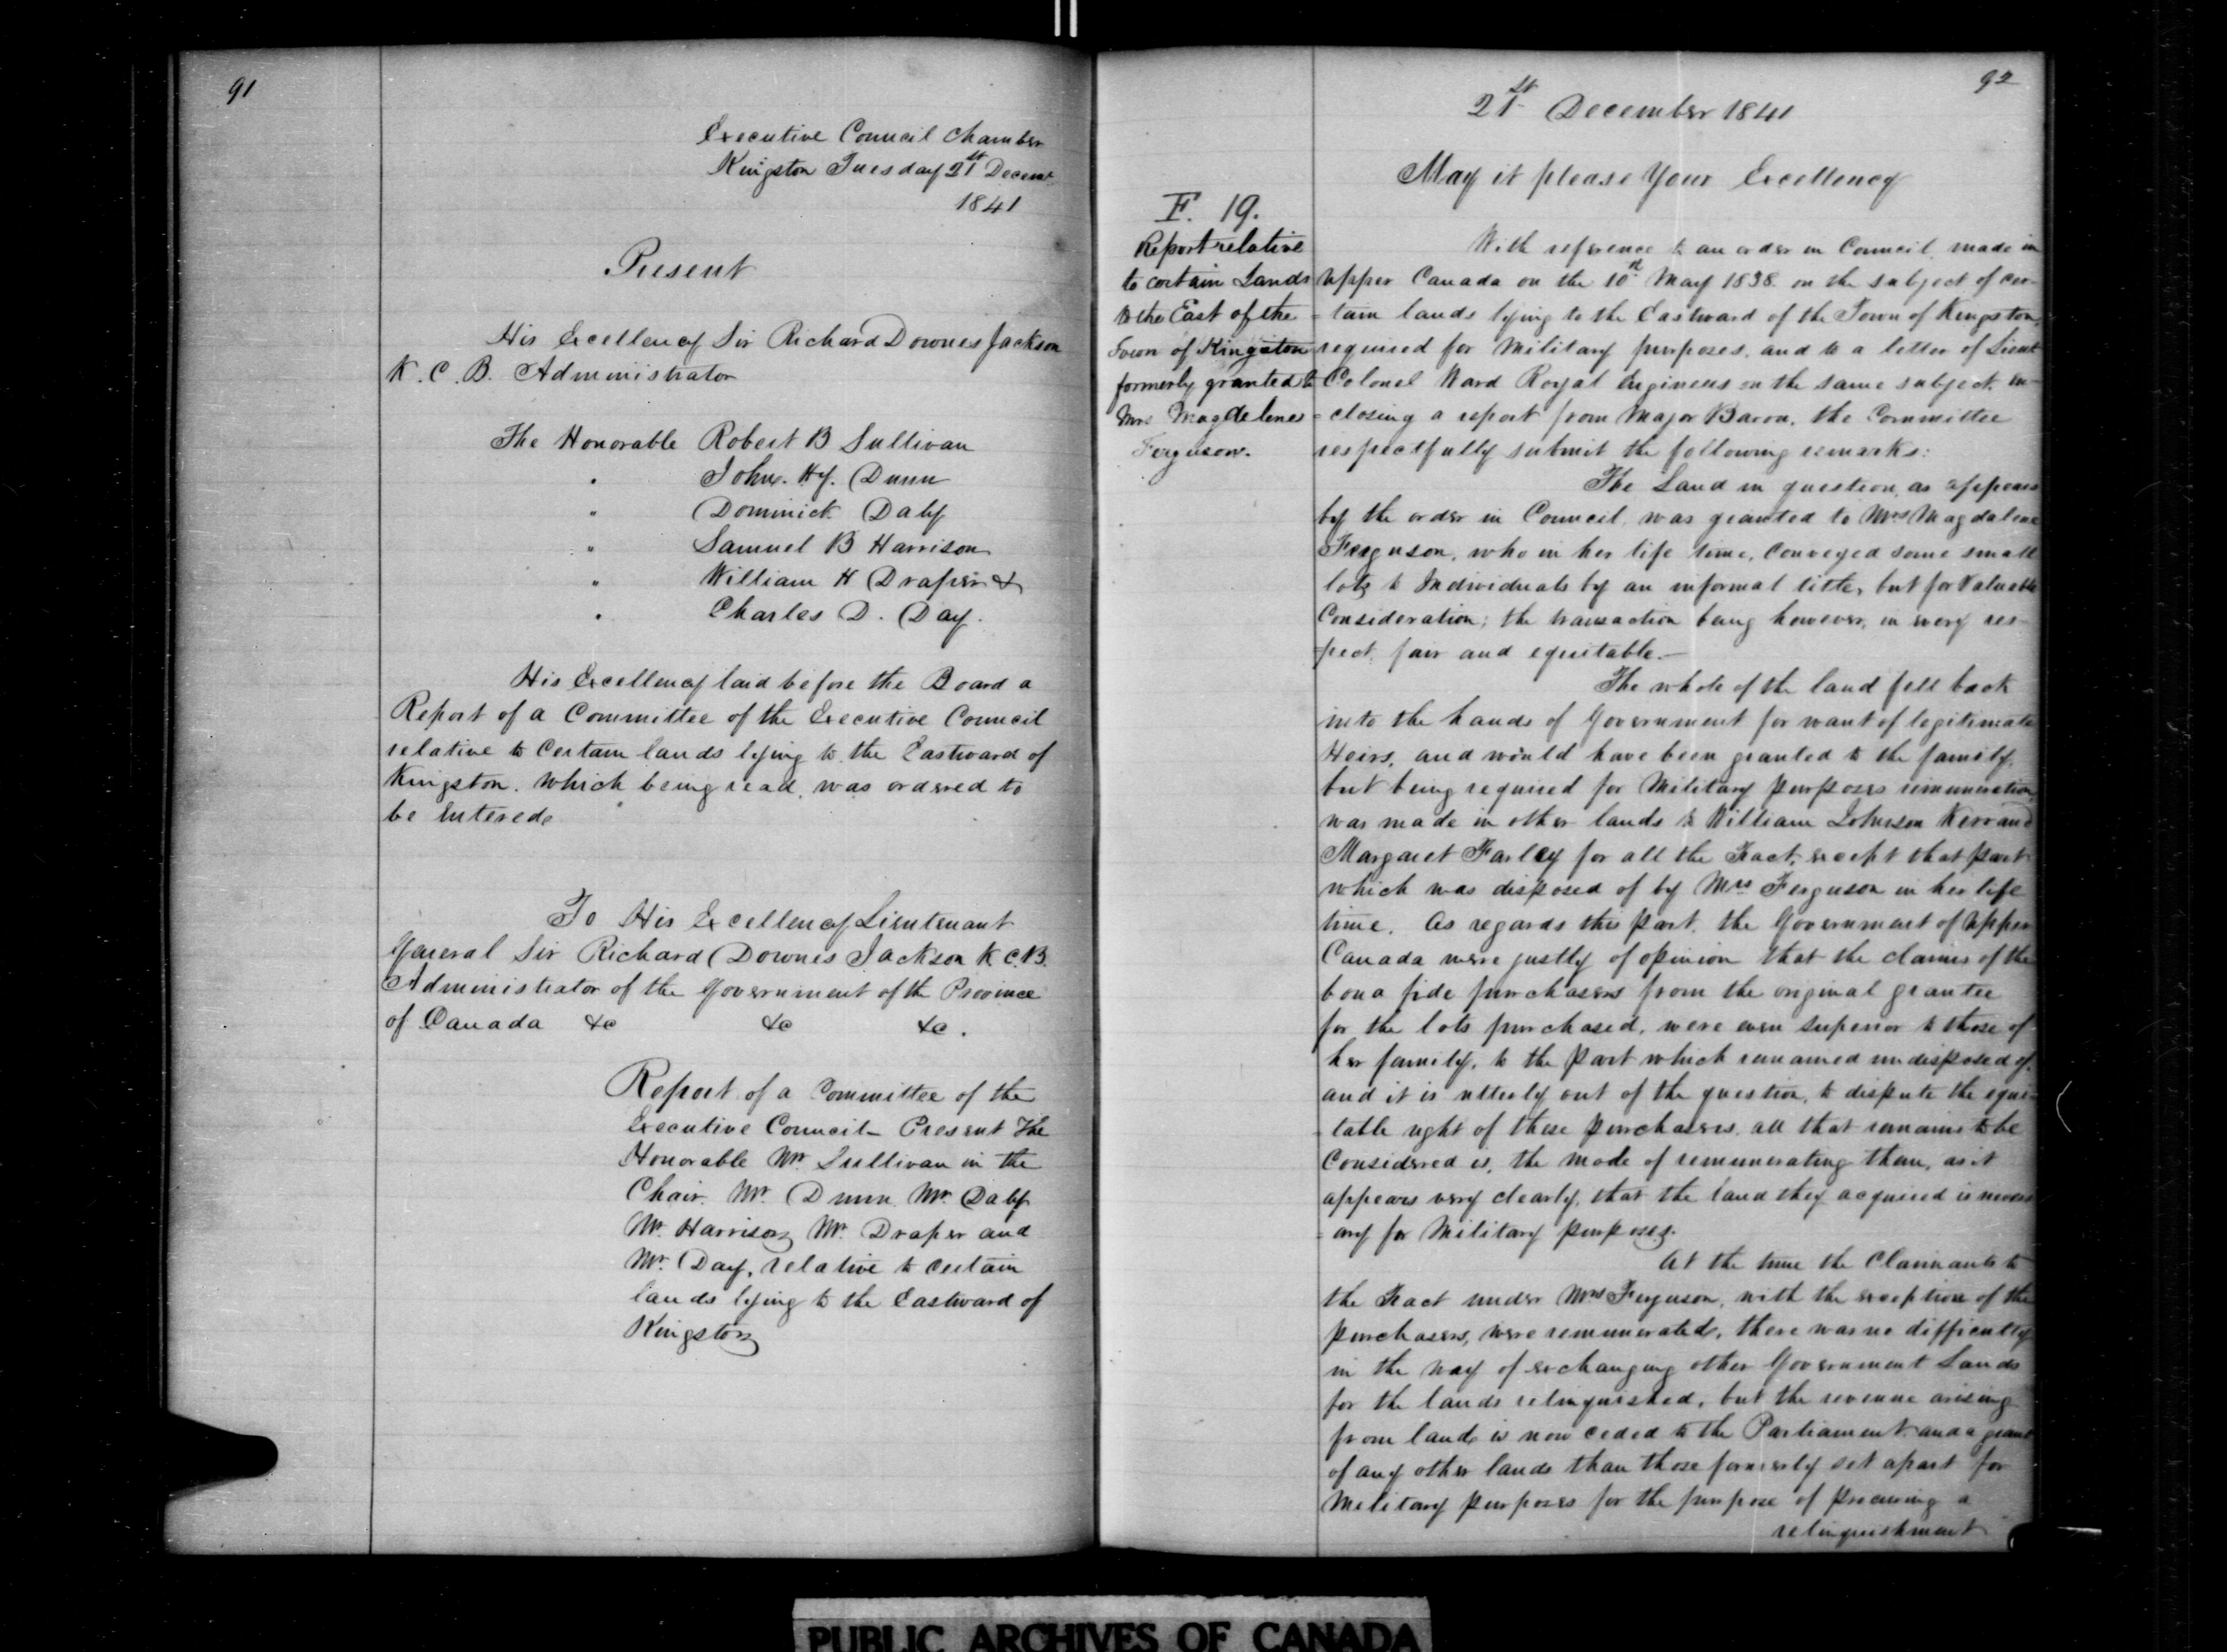 91
Executive Council Chamber
Kingston Tuesday 21st Decemr
1841
Present
His Excellency Sir Richard Downes Jackson
K. C. B. Administrator
The Honorable Robert B Sullivan
" John. Hy. Dunn
" Dominick Daly
" Samuel B Harrison
" William H Draper &
" Charles D. Day.
His Excellency laid before the Board a
Report of a Committee of the Executive Council
relative to Certain lands lying to the Eastward of
Kingston. Which being read, was ordered to
be Entered.
To His Excellency Lieutenant
General Sir Richard Downes Jackson K. C. B.
Administrator of the Government of the Province
of Canada &c &c &c.
Report of a Committee of the
Executive Council – Present The
Honorable Mr. Sullivan in the
Chair. Mr. Dunn Mr. Daly
Mr. Harrison Mr. Draper and
Mr. Day, relative to certain
lands lying to the Eastward of
Kingston
92
21st December 1841
May it please Your Excellency
F. 19.
Report relative
to certain Lands
to the East of the
Town of Kingston
formerly granted to
Mrs Magdelene
Ferguson.
With reference to an order in Council, made in
Upper Canada on the 10th May 1838 on the subject of cer-
-tain lands lying to the Eastward of the Town of Kingston,
required for Military purposes, and to a letter of Lieut
Colonel Ward Royal Engineers on the same subject, en-
-closing a report from Major Baron, the Committee
respectfully submit the following remarks:
The Land in question, as appears
by the order in Council, was granted to Mrs Magdalene
Ferguson, who in her life time, Conveyed some small
lots to Individuals by an informal title, but for Valuable
Consideration; the transaction being however, in every res-
-pect, fair and equitable.—
The whole of the land fell back
into the hands of Government for want of legitimate
Heirs, and would have been granted to the family,
but being required for Military purposes remuneration
was made in other lands to William Johnson Kerr and
Margaret Farley for all the Tract, except that part
which was disposed of by Mrs Ferguson in her life
time. As regards this part, the Government of Upper
Canada were justly of opinion that the claims of the
bona fide purchasers from the original grantee
for the lots purchased, were even superior to those of
her family, to the part which remained undisposed of,
and it is utterly out of the question, to dispute the equi-
-table right of these purchasers, all that remains to be
Considered is, the mode of remunerating them, as it
appears very clearly, that the land they acquired is necess
-ary for Military purposes.
At the time the Claimants to
the Tract under Mrs Ferguson, with the exception of the
purchasers, were remunerated, there was no difficulty
in the way of exchanging other Government Lands
for the lands relinquished, but the revenue arising
from lands is now ceded to the Parliament and a grant
of any other lands than those formerly set apart for
Military purposes for the purpose of procuring a
relinquishment
PUBLIC ARCHIVES OF CANADA